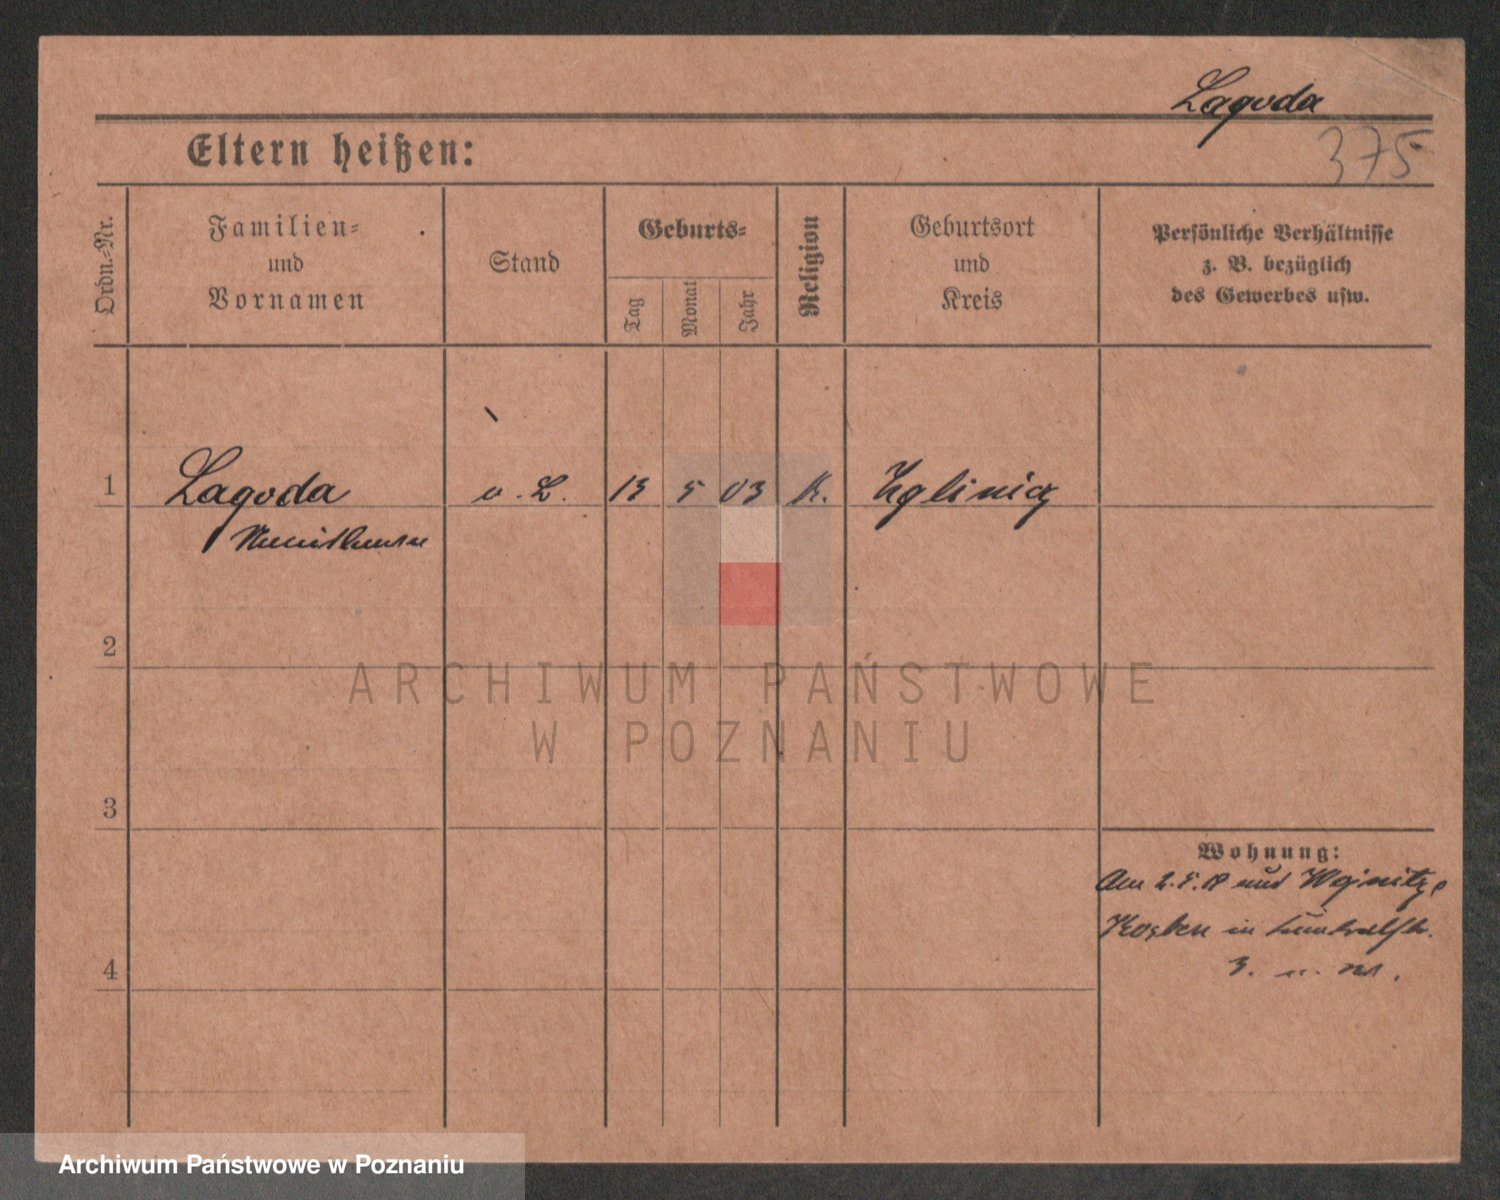 Lagoda
375
Eltern heißen:
Ordn.-Nr.
Familien-
und
Vornamen
Stand
Geburts-
Tag
Monat
Jahr
Religion
Geburtsort
und
Kreis
Persönliche Verhältnisse
z. B. bezüglich
des Gewerbes usw.
1 Lagoda 13 5 03 K.
2
ARCHIWUM PAŃSTWOWE
W POZNANIU
3
Wohnung:
Am 2.5.18
in
4
3.
Archiwum Państwowe w Poznaniu